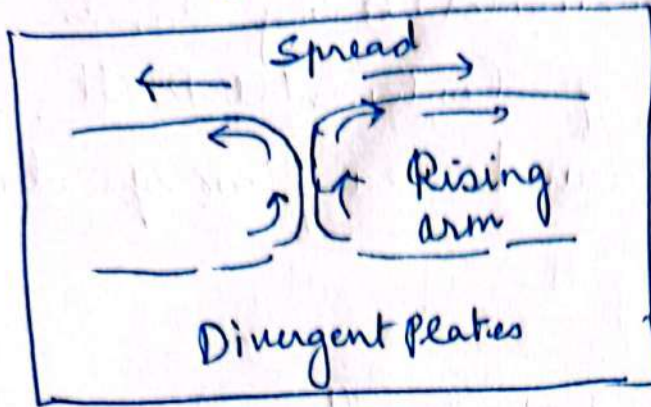 Spread
Rising
arm
Divergent Plates